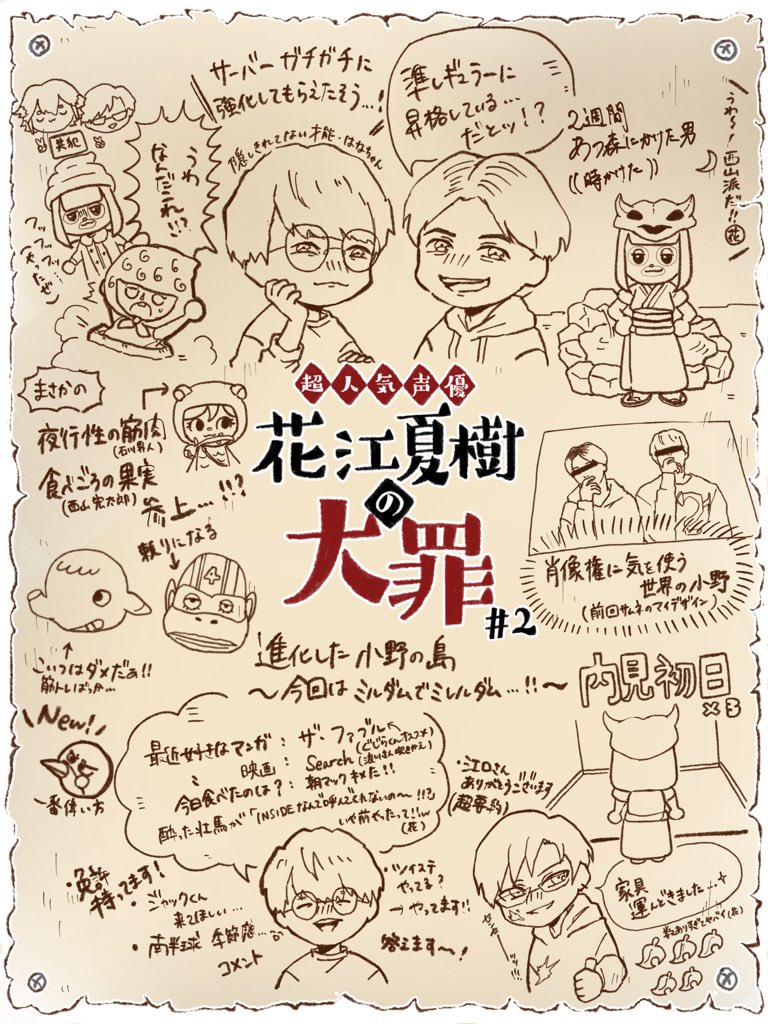 サーバー ガチガチに
強化してもらえたそう…!
準レギュラーに
昇格している…
だとッ!?
2週間
あつ森にかけた男
((時かけた))
うわ~!西山派だ!!
花
共犯
うわ
なんだこれ!!?
隠しきれてない才能・はなちゃん
フッ
フッ
フッ
まさかの
夜行性の筋肉
(石川界人)
食べごろの果実
(西山宏太朗)
参上…!!?
頼りになる
超人気声優
花江夏樹
の
大罪
#2
肖像権に気を使う
世界の小野
(前回サムネのマイデザイン)
こいつはダメだぁ!!
筋トレばっか…
進化した 小野の島
~今回は ミルダムでミレルダム…!!~
内見初日
×3
New!
一番偉い方
最近好きなマンガ: ザ・ファブル
映画: Search
今日食べたのは?: 朝マックキメた!!
酔った壮馬が「INSIDEなんで呼んでくれないの~!!?」
いや前やったって!!w
(花)
・江口さん
ありがとうございます
(超要約)
・免許
持ってます!
・ジャックくん
来てほしい…
・南半球 季節感…
コメント
・ツイステ
やってる?
→やってます!!
答えます~!
家具
運んどきました…